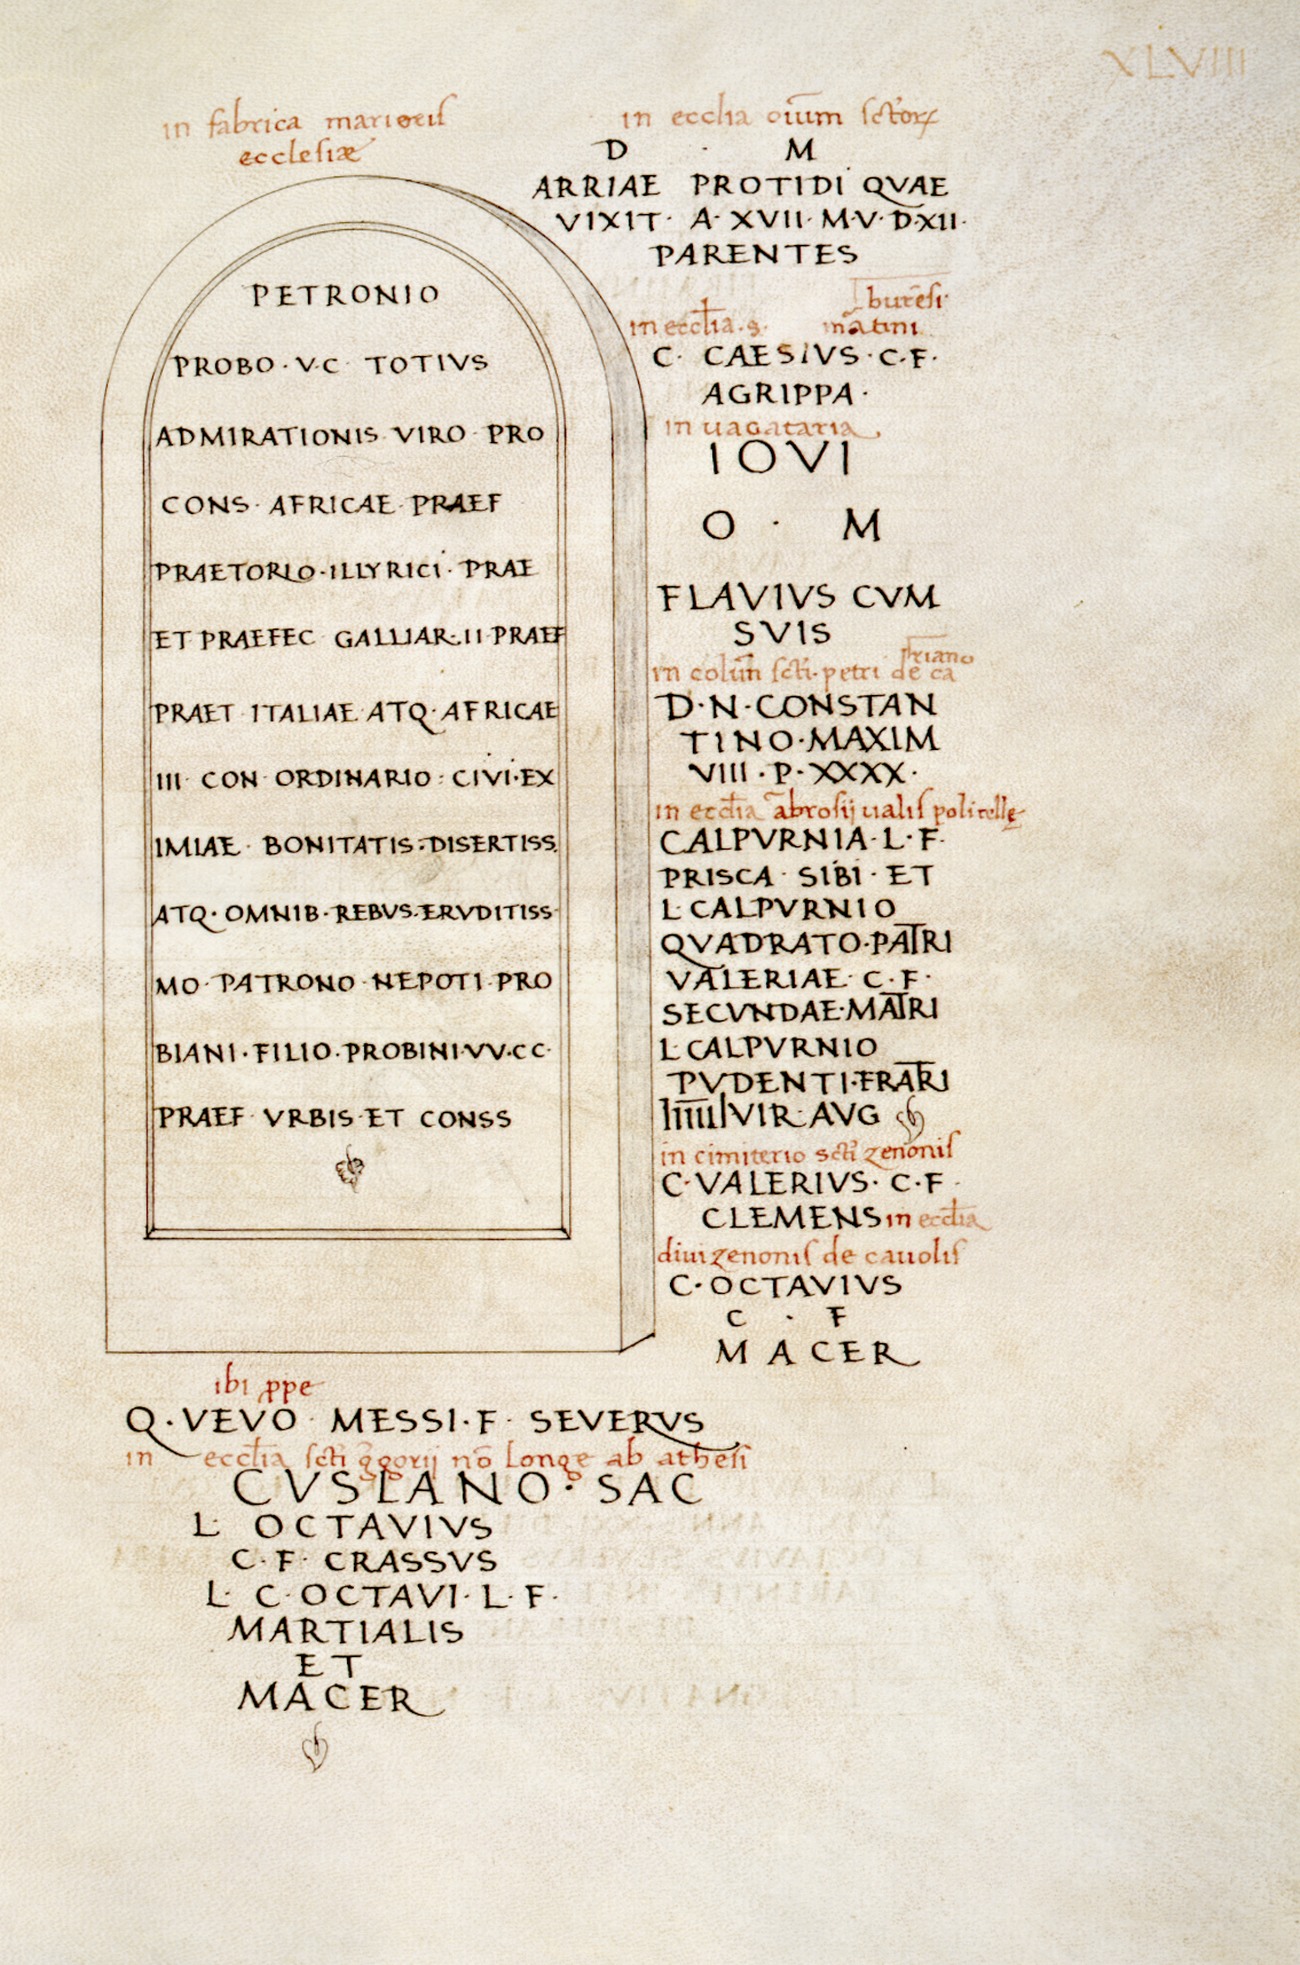 XLVIII
in fabrica marioris
ecclesiæ
PETRONIO
PROBO · V·C TOTIVS
ADMIRATIONIS VIRO PRO
CONS · AFRICAE · PRAEF
PRAETORIO · ILLYRICI · PRAE
ET PRAEFEC GALLIAR · II PRAEF
PRAET ITALIAE ATQ · AFRICAE
III CON ORDINARIO : CIVI · EX
IMIAE BONITATIS · DISERTISS
ATQ · OMNIB · REBVS · ERVDITISS
MO · PATRONO · NEPOTI · PRO
BIANI · FILIO · PROBINI · VV · CC ·
PRAEF VRBIS · ET CONSS
in ecclia oium sctor
D · M
ARRIAE PROTIDI QVAE
VIXIT · A · XVII · M · V · D · XII ·
PARENTES
in ecclia · s · buresi
C · CAESIVS · C · F ·
AGRIPPA ·
in uagataria
IOVI
O · M
FLAVIVS CVM
SVIS
in colum scti · petri de ca striano
D · N · CONSTAN
TINO · MAXIM
VIIII · P · XXXX ·
in ecclia abrosij ualis policelle
CALPVRNIA · L · F ·
PRISCA · SIBI · ET
L · CALPVRNIO
QVADRATO · PATRI
VALERIAE · C · F ·
SECVNDAE · MATRI
L · CALPVRNIO
PVDENTI · FRATRI
IIIIII VIR · AVG
in cimiterio scti zenonis
C · VALERIVS · C · F ·
CLEMENS in ecclia
diui zenonis de cauolis
C · OCTAVIVS
C · F
MACER
ibi ppe
Q · VEVO · MESSI · F · SEVERVS
in ecclia scti ggorij no longe ab athesi
CVSLANO · SAC
L · OCTAVIVS
C · F · CRASSVS
L · C · OCTAVI · L · F ·
MARTIALIS
ET
MACER